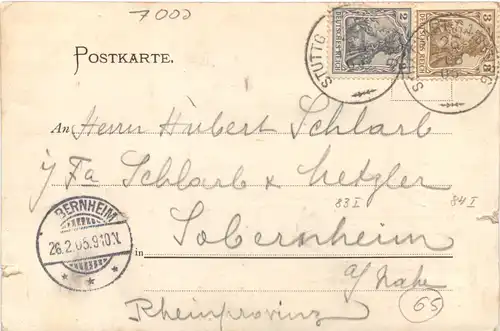 7000
POSTKARTE.
STUTTG
2
DEUTSCHES REICH
3
DEUTSCHES REICH
An Herrn Hubert Schlarb
i/Fa Schlarb & Metzler
83 I 84 I
BERNHEIM
26.2.05.9-10.V.
in Sobernheim
a/Nahe
Rheinprovinz
65